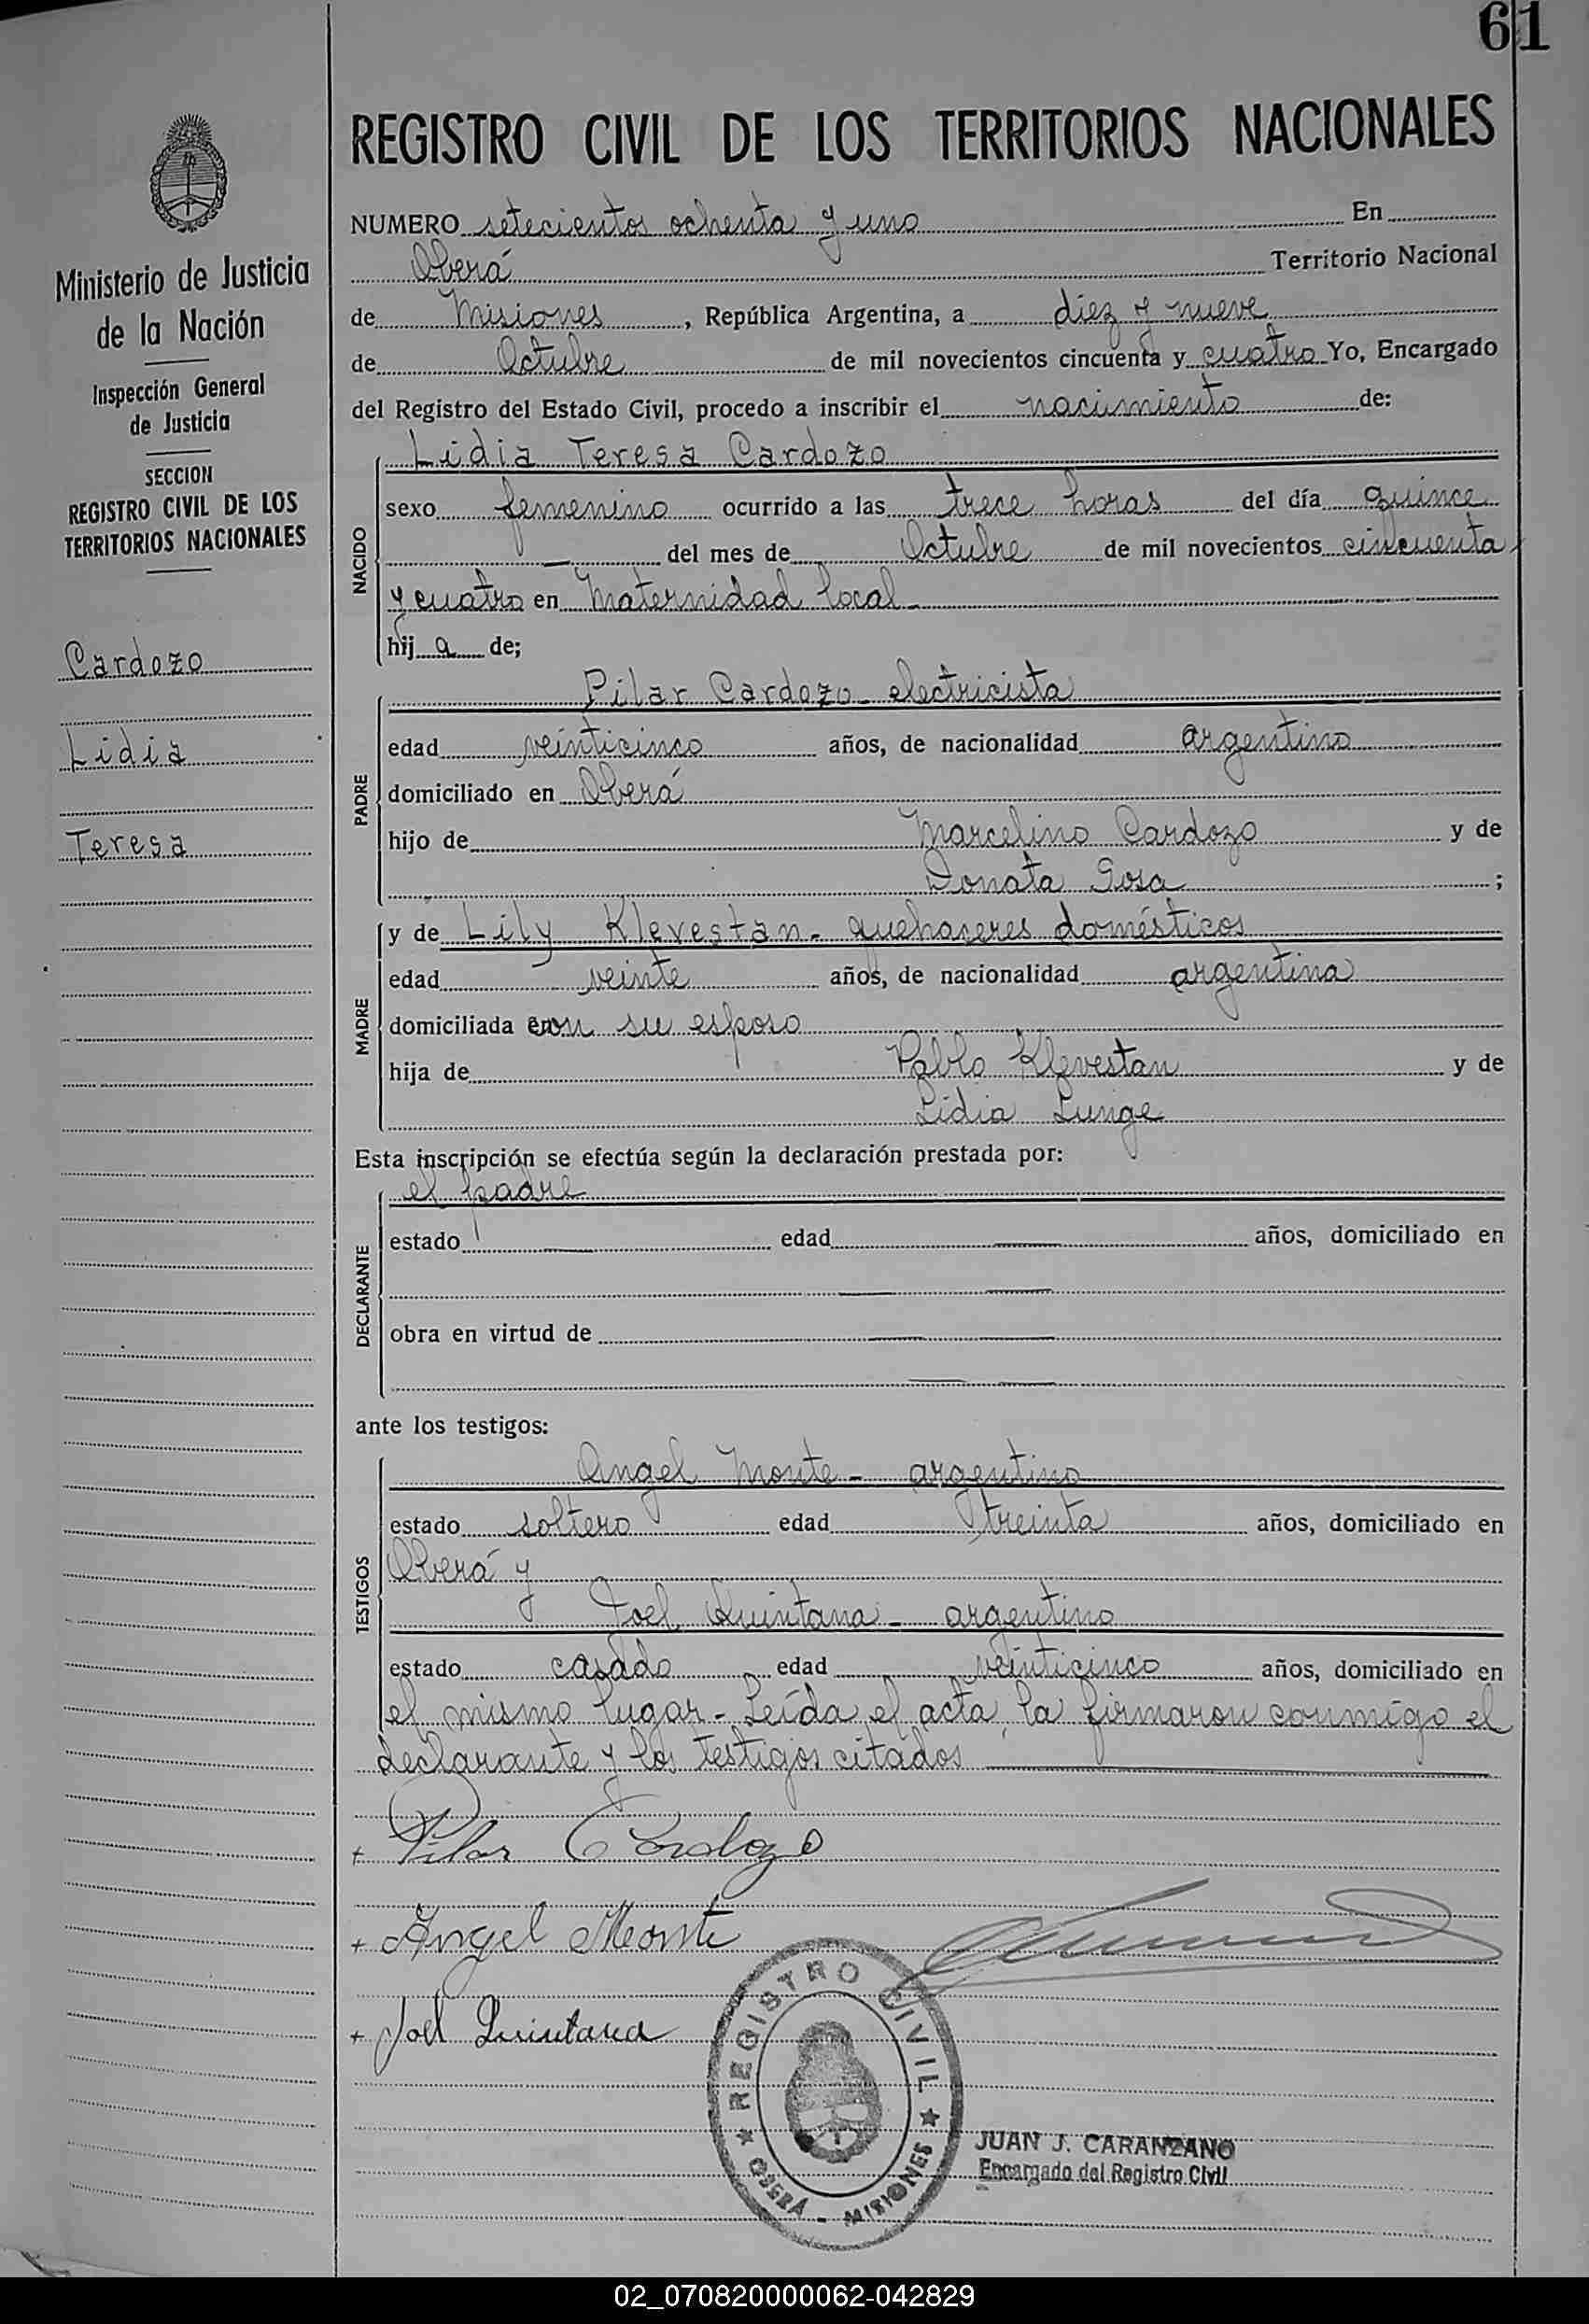 61
REGISTRO CIVIL DE LOS TERRITORIOS NACIONALES
Ministerio de Justicia
de la Nación
Inspección General
de Justicia
SECCION
REGISTRO CIVIL DE LOS
TERRITORIOS NACIONALES
Cardozo
Lidia
Teresa
NUMERO setecientos ochenta y uno En
Oberá Territorio Nacional
de Misiones, República Argentina, a diez y nueve
de Octubre de mil novecientos cincuenta y cuatro Yo, Encargado
del Registro del Estado Civil, procedo a inscribir el nacimiento de:
NACIDO
Lidia Teresa Cardozo
sexo femenino ocurrido a las trece horas del día quince
— del mes de Octubre de mil novecientos cincuenta
y cuatro en Maternidad local-
hija de;
PADRE
Pilar Cardozo- electricista
edad veinticinco años, de nacionalidad argentino
domiciliado en Oberá
hijo de Marcelino Cardozo y de
Donata Sosa ;
MADRE
y de Lily Klevestan- quehaceres domésticos
edad veinte años, de nacionalidad argentina
domiciliada con su esposo
hija de Pablo Klevestan y de
Lidia Lunge
Esta inscripción se efectúa según la declaración prestada por:
DECLARANTE
el padre
estado — edad — años, domiciliado en
— —
obra en virtud de — —
— —
ante los testigos:
TESTIGOS
Angel Monte- argentino
estado soltero edad treinta años, domiciliado en
Oberá y
Joel Quintana- argentino
estado casado edad veinticinco años, domiciliado en
el mismo lugar- Leída el acta, la firmaron conmigo el
declarante y los testigos citados
+ Pilar Cardozo
+ Angel Monte
+ Joel Quintana
REGISTRO CIVIL
OBERÁ - MISIONES
JUAN J. CARANZANO
Encargado del Registro Civil
02_070820000062-042829